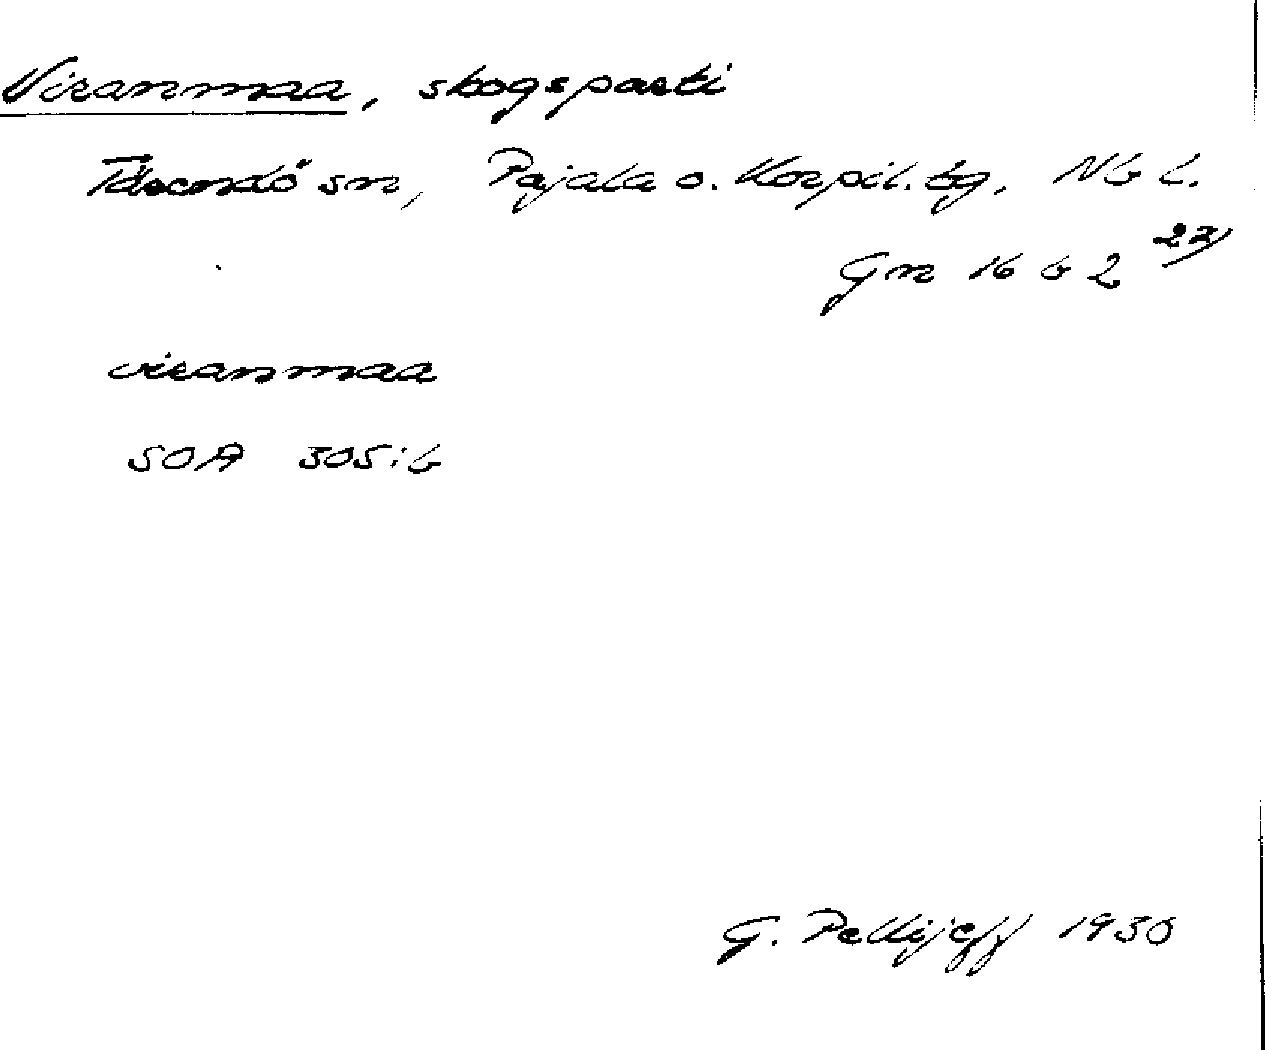 Viranmaa, skogsparti
Tärendö sn, Pajala o. Korpil. tg, Nb l.
Gn 16 b 2 22/
viranmaa
SOA 305:b
G. Pellijeff 1930